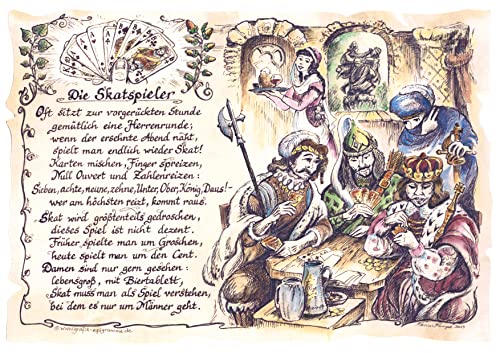 Die Skatspieler
Oft sitzt zur vorgerückten Stunde
gemütlich eine Herrenrunde;
wenn der ersehnte Abend näht,
spielt man endlich wieder Skat!
Karten mischen, Finger spreizen,
Null Ouvert und Zahlenreizen:
Sieben, achte, neune, zehne, Unter, Ober, König, Daus! –
wer am höchsten reizt, kommt raus.
Skat wird größtenteils gedroschen,
dieses Spiel ist nicht dezent.
Früher spielte man um Groschen,
heute spielt man um den Cent.
Damen sind nur gern gesehen:
lebensgroß, mit Biertablett,
Skat muss man als Spiel verstehen,
bei dem es nur um Männer geht.